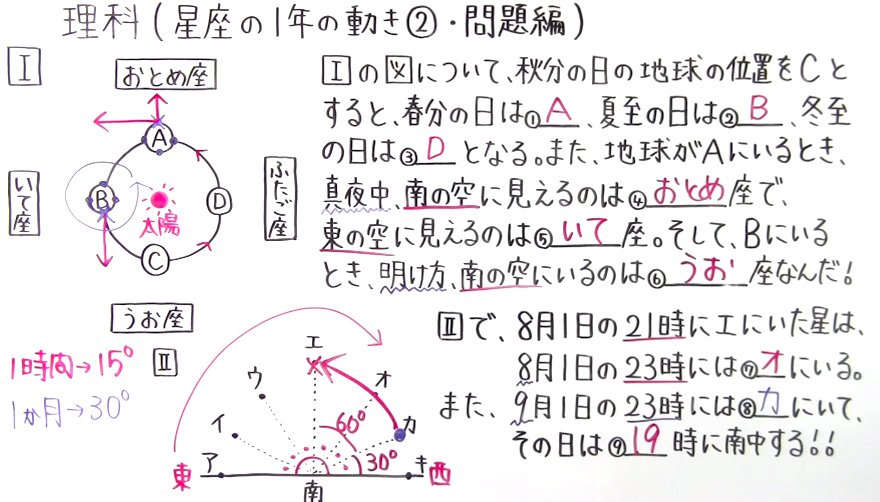 理科(星座の1年の動き②・問題編)
I
おとめ座
A
いて座
B
太陽
D
ふたご座
C
うお座
Iの図について、秋分の日の地球の位置をCと
すると、春分の日は①A、夏至の日は②B、冬至
の日は③Dとなる。また、地球がAにいるとき、
真夜中、南の空に見えるのは④おとめ座で、
東の空に見えるのは⑤いて座。そして、Bにいる
とき、明け方、南の空にいるのは⑥うお座なんだ!
1時間→15°
1か月→30°
II
エ
ウ
オ
イ
カ
60°
ア
30°
キ
東
西
南
IIで、8月1日の21時にエにいた星は、
8月1日の23時には⑦オにいる。
また、9月1日の23時には⑧カにいて、
その日は⑨19時に南中する!!